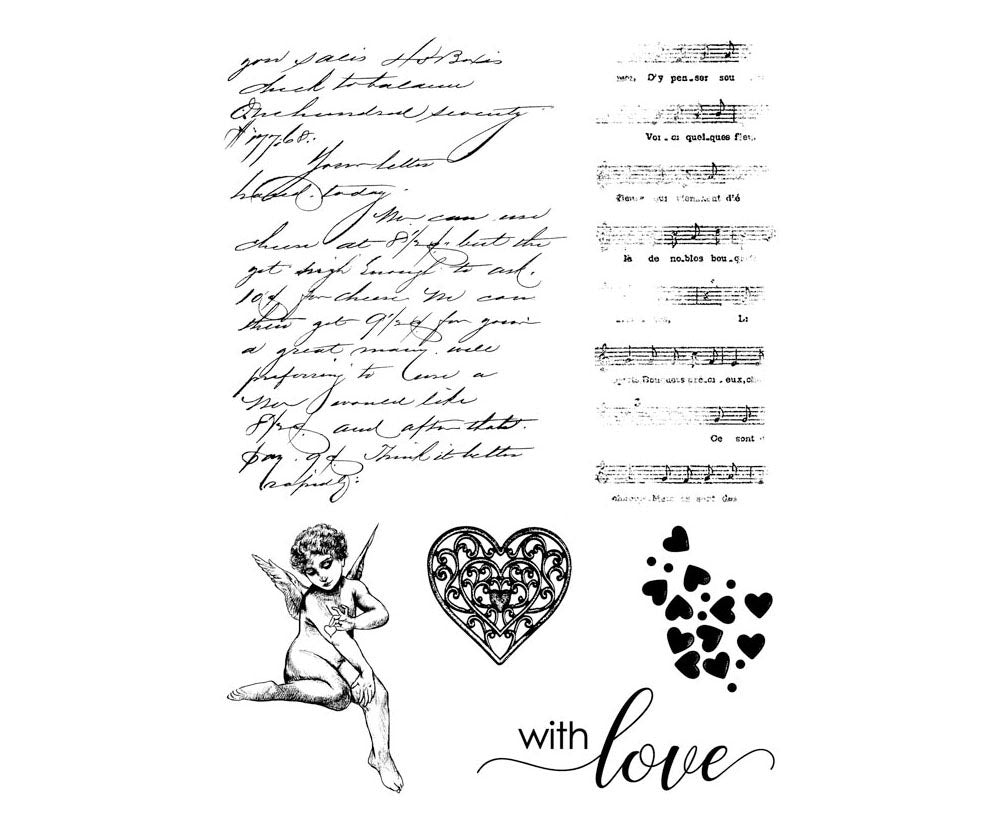 your
check to balance
One hundred seventy
$177.68.
Your letter
today.
We can use
cheese at 8 1/2 ¢. but the
get high Enough to ask.
10 ¢ for cheese We can
then get 9 1/2 ¢ for your
a great many. will
preferring to use a
We would like
8 1/2 ¢. and after that.
pay. 9 ¢ Think it better
rapidly.
D'y pen-ser sou
Voi-ci quel-ques fleu
qui viennent d'é
là de no-bles bou-q
Li
Bouquets pré-ci-eux, ch
3
Ce sont
Mais ce sont des
with love